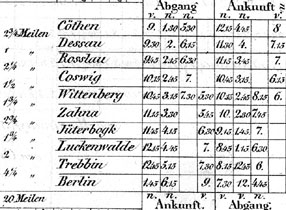 Abgang Ankunft
v. n. n. n. n. v.
2¾ Meilen Cöthen 9. 1.30 5.30 12.15 4.45 8
1 „ Dessau 9.30 2. 6.15 11.30 4. 7.15
2¼ „ Rosslau 9.45 2.15 6.30 11.15 3.45 7.
1½ „ Coswig 10.15 2.45 7. 10.45 3.15 6.15
1¾ „ Wittenberg 10.45 3.15 7.30 5.30 10.15 2.45 8.15 6.
2¾ „ Zahna 11.15 3.30 5.45 10. 2.30 7.45
1¾ „ Jüterbogk 11.45 4.15 6.30 9.15 1.45 7.
2 „ Luckenwalde 12.15 4.45 7. 8.45 1.15 6.30
4¼ „ Trebbin 12.45 5.15 7.30 8.15 12.45 6.
Berlin 1.45 6.15 9. 7.30 12. 4.45
20 Meilen n. n. n. v. v. n.
Ankunft. Abgang.